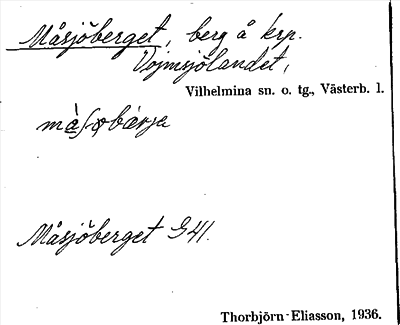 Måsjöberget, berg å krp.
Vojmsjölandet,
Vilhelmina sn. o. tg., Västerb. l.
Måsjöberget G41.
Thorbjörn Eliasson, 1936.